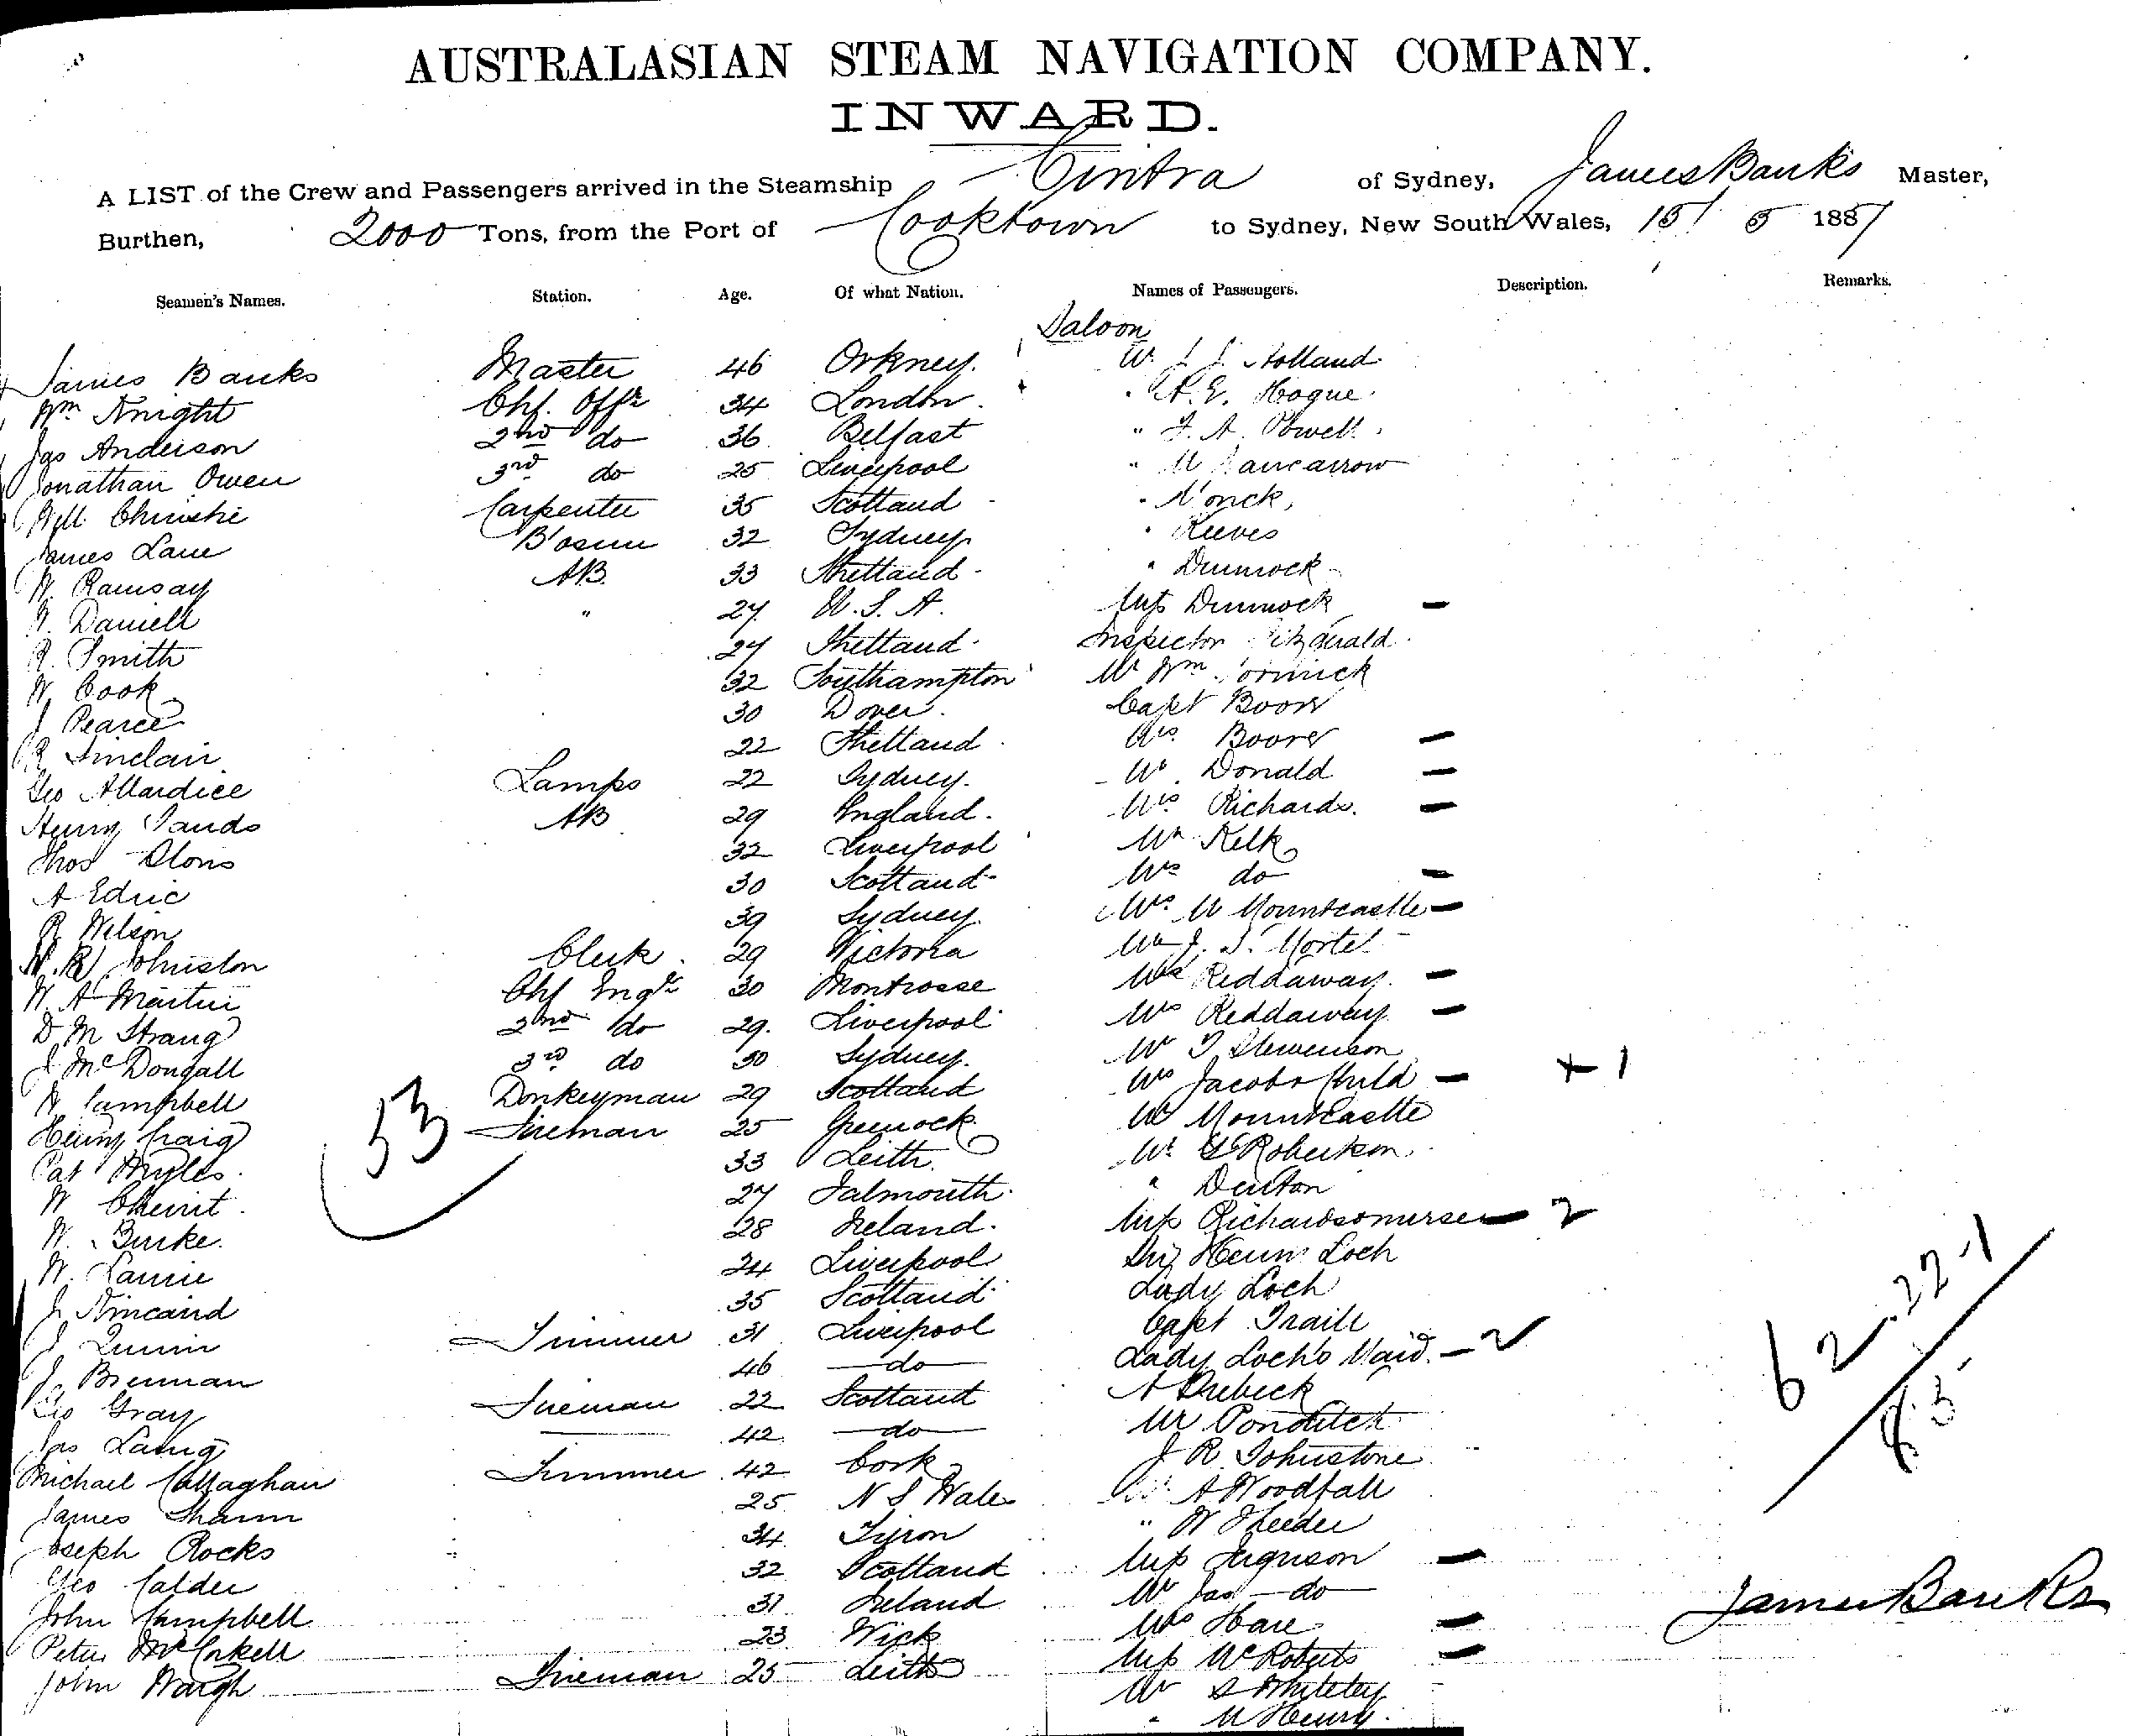 AUSTRALASIAN STEAM NAVIGATION COMPANY.
INWARD.
A LIST of the Crew and Passengers arrived in the Steamship Cintra of Sydney, James Banks Master,
Burthen, 2000 Tons, from the Port of Cooktown to Sydney, New South Wales, 15/ 5 1887
Seamen's Names. Station. Age. Of what Nation. Names of Passengers. Description. Remarks.
Saloon
James Banks Master 46 Orkney. Holland
Wm Knight Chf. Offr 34 London. Hogue.
Jas Anderson 2nd do 36 Belfast " F. A. Powell
Jonathan Owen 3rd do 25 Liverpool "
Will Christie Carpenter 35 Scotland
James Lane B'osun 32 Sydney " Reeves
W. Ramsay AB. 33 Shetland " Dummock
Daniell " 27 U. S. A. Miss Dummock —
R. Smith 27 Shetland Inspector Fitzgerald
W. Cook 32 Southampton Mr Wm
J Pearce 30 Dover. Capt Boore
Sinclair 22 Shetland Mrs. Boore —
Geo Allardice Lamps 22 Sydney. Donald —
Henry Sands AB 29 England. Mrs Richards. —
Thos Slons 32 Liverpool Mr Kelk
A Edric 30 Scotland Mrs do —
R Wilson 39 Sydney. Mrs. M Mountcastle —
W. R. Johnston Clerk 29 Victoria Mr J. S.
W. A Martin Chf Engr 30 Montrosse Reddaway. —
D M Strang 2nd do 29. Liverpool Mrs Reddaway —
J McDougall 3rd do 30 Sydney. Mr T Stevenson
W Campbell Donkeyman 29 Scotland Mrs Jacobs Child — + 1
Henry Craig Fireman 25 Greenock Mr Mountcastle
53
Pat Myles. 33 Leith. Mr. Robertson
W 27 Falmouth " Denton
W. Burke. 28 Ireland. Miss Richardson nurse — 2
W. Laurie 24 Liverpool Sir Henry Loch
J Kincaird 35 Scotland Lady Loch
J Quinn Trimmer 31 Liverpool Capt Traill
J. Brennan 46 — do — Lady Loch's Maid. — 2
62. 22-1
83
Geo Gray Fireman 22 Scotland A
Jas Laing 42 — do — Mr
Michael Callaghan Trimmer 42 Cork J R Johnstone
James Shann 25 N S Wales A Woodfall
Joseph Rocks 34 Tyron " W
Geo Calder 32 Scotland Miss Ferguson —
John Campbell 31 Ireland Mr Jas — do —
Peter McCorkell 23 Wick Mrs Hare —
James Banks
John Waugh Fireman 25 Leith Miss McRoberts —
Mr S Whiteley
" M Henry.